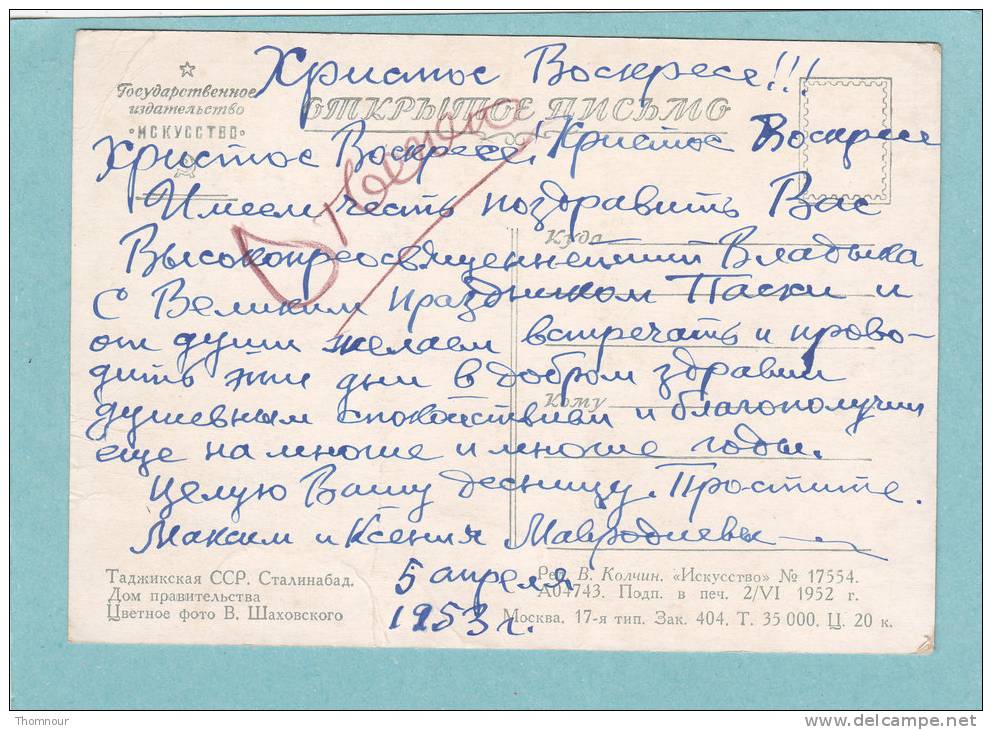 Христос Воскресе!!!
Государственное
издательство
«ИСКУССТВО»
ОТКРЫТОЕ ПИСЬМО
Христос Воскресе! Христос Воскресе
Имеем честь поздравить Вас
Куда
Высокопреосвященнейший Владыка
с Великим праздником Пасхи и
от души желаем встречать и прово-
дить эти дни в добром здравии
Кому
душевным спокойствием и благополучии
еще на многие и многие годы.
Целую Вашу десницу. Простите.
Максим и Ксения Мавродиевы
5 апреля
1953 г.
Таджикская ССР. Сталинабад.
Дом правительства
Цветное фото В. Шаховского
Ред. В. Колчин. «Искусство» № 17554.
А04743. Подп. в печ. 2/VI 1952 г.
Москва. 17-я тип. Зак. 404. Т. 35 000. Ц. 20 к.
Thomnour
delcampe.net